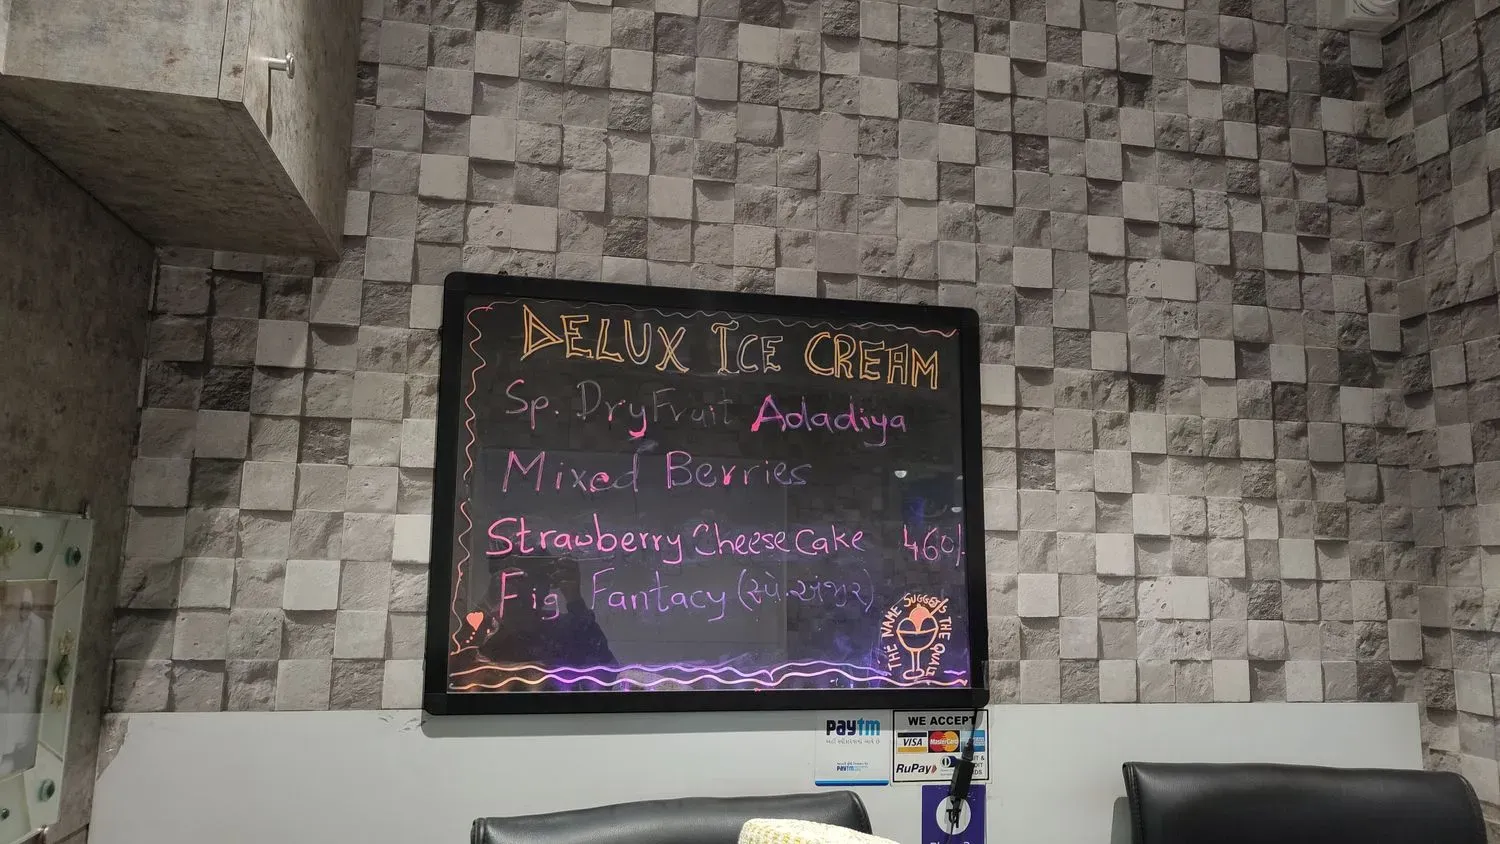 DELUX ICE CREAM
Sp. DryFruit Adadiya
Mixed Berries
Strawberry Cheese cake 460/-
Fig Fantacy (સ્પે. અંજીર)
THE NAME SUGGESTS THE QUALITY
paytm
paytm
WE ACCEPT
VISA MasterCard
RuPay